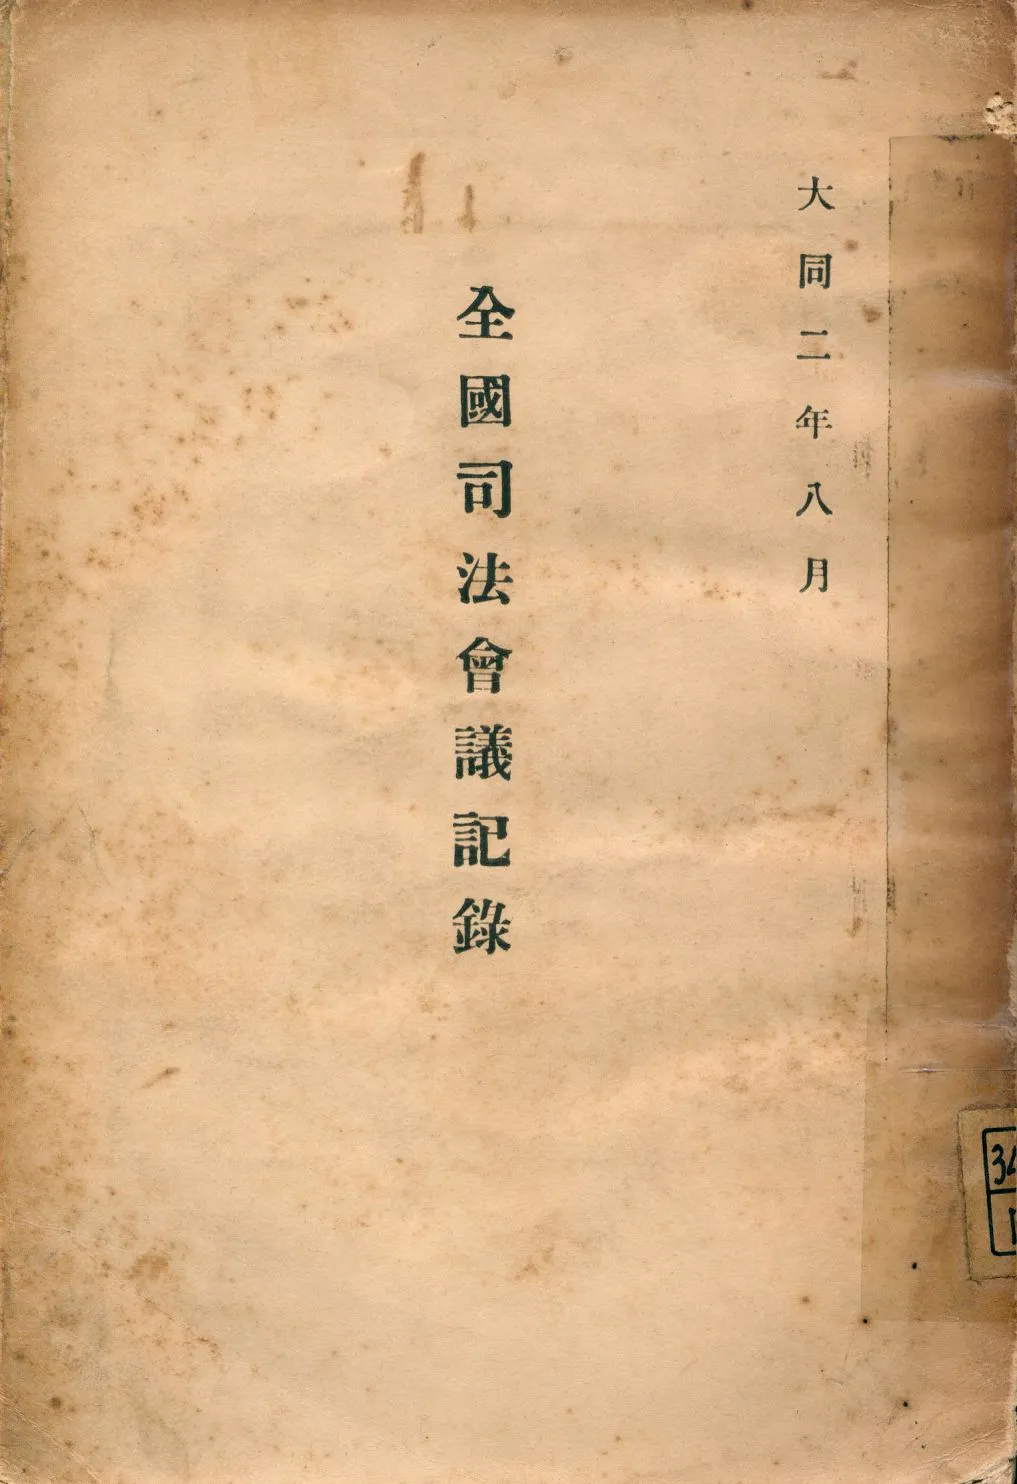 大同二年八月
全國司法會議記錄